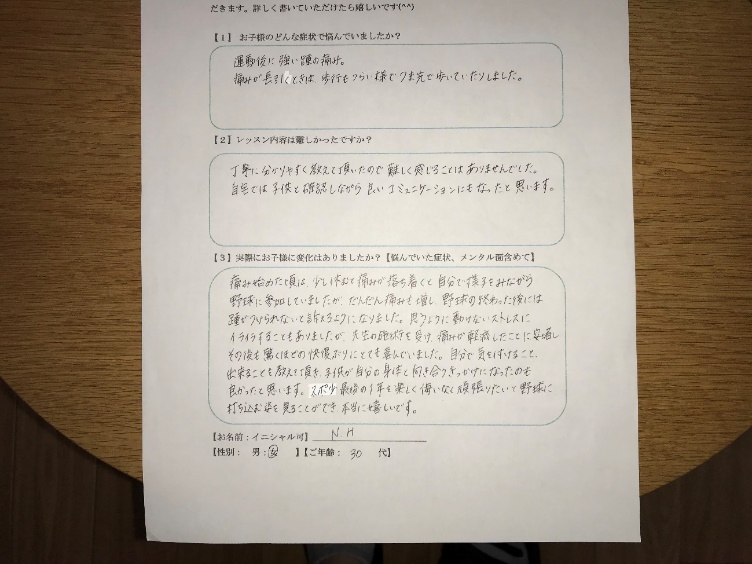 だきます。詳しく書いていただけたら嬉しいです(^^)
【1】 お子様のどんな症状で悩んでいましたか？
運動後に強い踵の痛み。
痛みが長引くときは 歩行もつらい様でつま先で歩いていたりしました。
【2】レッスン内容は難しかったですか？
丁寧に分かりやすく教えて頂いたので難しく感じることはありませんでした。
自宅では子供と確認しながら良いコミュニケーションにもなったと思います。
【3】実際にお子様に変化はありましたか？【悩んでいた症状、メンタル面含めて】
痛み始めた頃は、少し休むと痛みが落ち着くと自分で様子をみながら
野球に参加していましたが、だんだん痛みも増し、野球の終わった後には
踵がつけられないと訴えるようになりました。思うように動けないストレスに
イライラすることもありましたが、先生の施術を受け、痛みが軽減したことに安堵し
その後も驚くほどの快復ぶりにとても喜んでいました。自分で気を付けること、
出来ることを教えて頂き、子供が自分の身体と向き合うきっかけになったのも
良かったと思います。スポ少最後の1年を楽しく悔いなく頑張りたいと野球に
打ち込む姿を見ることができ、本当に嬉しいです。
【お名前：イニシャル可】 N H
【性別： 男：女 】【ご年齢： 30 代】